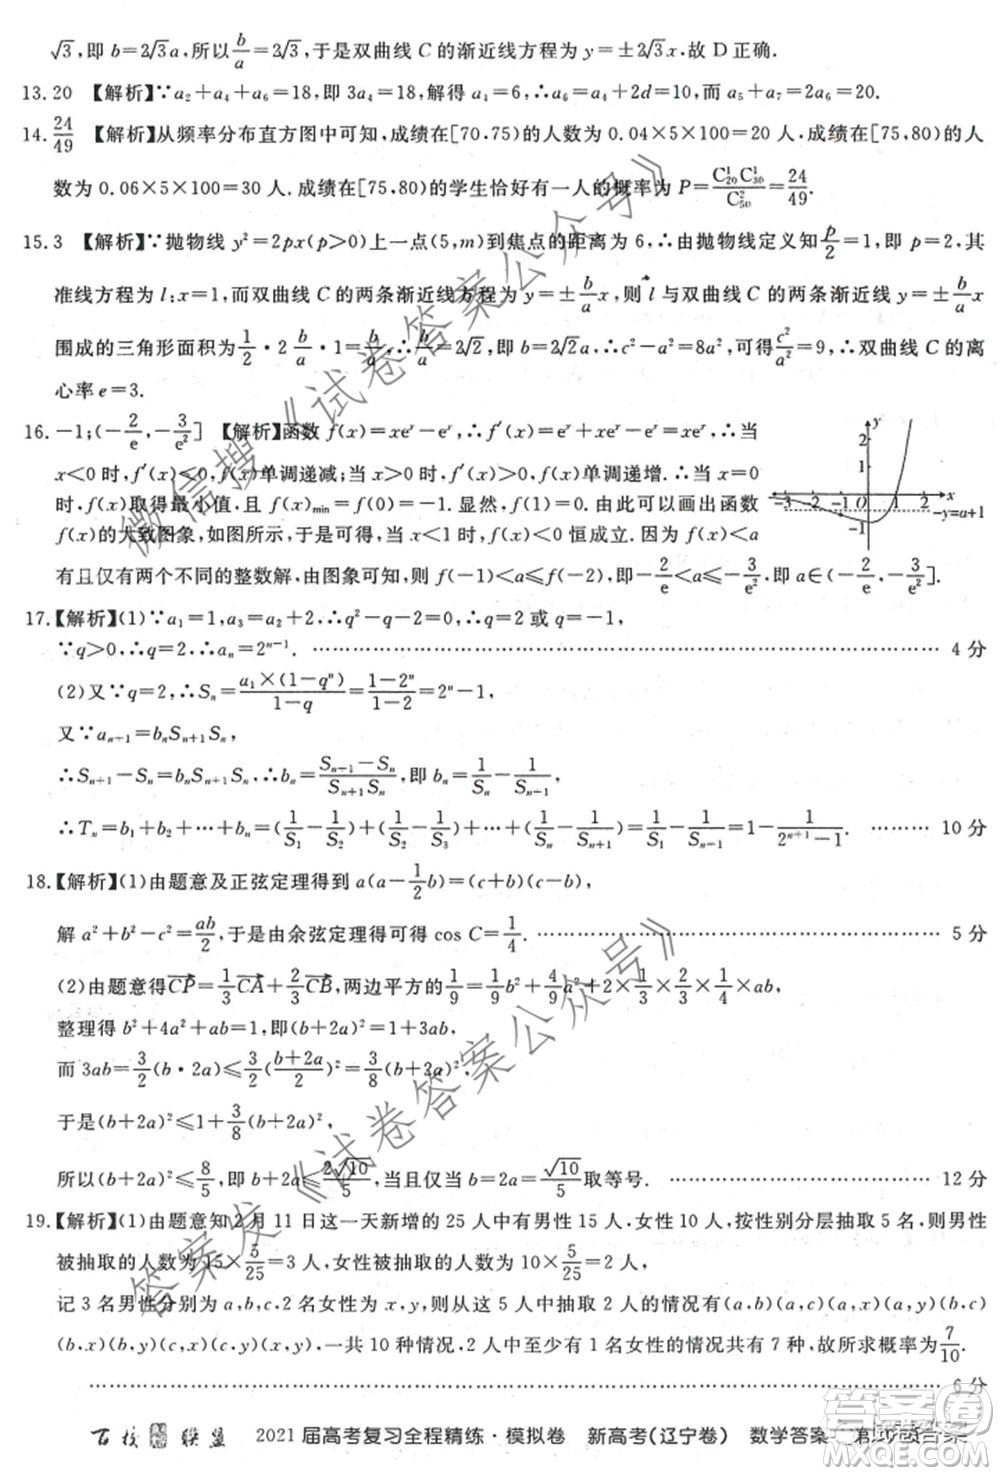 √3,即 b=2√3a,所以 b/a=2√3,于是双曲线 C 的渐近线方程为 y=±2√3x,故 D 正确.
13.20 【解析】∵a₂+a₄+a₆=18,即 3a₄=18,解得 a₄=6,∴a₄+2d=10,而 a₅+a₇=2a₆=20.
14.24/49 【解析】从频率分布直方图中可知,成绩在[70.75)的人数为 0.04×5×100=20 人.成绩在[75,80)的人
数为 0.06×5×100=30 人.成绩在[75,80)的学生恰好有一人的概率为 P=C¹₂₀C¹₃₀/C²₅₀=24/49.
15.3 【解析】∵抛物线 y²=2px(p>0)上一点(5,m)到焦点的距离为 6,∴由抛物线定义知 p/2=1,即 p=2,其
准线方程为 l:x=1,而双曲线 C 的两条渐近线方程为 y=±b/a x,则 l 与双曲线 C 的两条渐近线 y=±b/a x
围成的三角形面积为 1/2·2 b/a·1=b/a,∴b/a=2√2,即 b=2√2a,∴c²-a²=8a²,可得 c²/a²=9,∴双曲线 C 的离
心率 e=3.
16.-1;(-2/e,-3/e²] 【解析】函数 f(x)=xeˣ-eˣ,∴f′(x)=eˣ+xeˣ-eˣ=xeˣ,∴当
x<0 时,f′(x)<0,f(x)单调递减;当 x>0 时,f′(x)>0,f(x)单调递增.∴当 x=0
时,f(x)取得最小值.且 f(x)min=f(0)=-1.显然,f(1)=0.由此可以画出函数
f(x)的大致图象,如图所示,于是可得,当 x<0 时,f(x)<0 恒成立.因为 f(x)<a
有且仅有两个不同的整数解,由图象可知,f(-1)<a≤f(-2),即-2/e<a≤-3/e²,即 a∈(-2/e,-3/e²].
y
2
1
-3 -2 -1 O 1 2 x
-1
y=a+1
17.【解析】(1)∵a₁=1,a₃=a₂+2,∴q²-q-2=0,∴q=2 或 q=-1,
∵q>0,∴q=2,∴aₙ=2ⁿ⁻¹. ………… 4 分
(2)又∵q=2,∴Sₙ=a₁×(1-qⁿ)/(1-q)=(1-2ⁿ)/(1-2)
又∵aₙ₊₁=bₙSₙ₊₁Sₙ,
∴Sₙ₊₁-Sₙ=bₙSₙ₊₁Sₙ,∴bₙ=(Sₙ₊₁-Sₙ)/(Sₙ₊₁Sₙ),即 bₙ=1/Sₙ-1/Sₙ₊₁,
∴Tₙ=b₁+b₂+…+bₙ=(1/S₁-1/S₂)+(1/S₂-1/S₃)+…+(1/Sₙ-1/Sₙ₊₁)=1/S₁-1/Sₙ₊₁=1-1/(2ⁿ⁺¹-1). ……… 10 分
18.【解析】(1)由题意及正弦定理得到 a(a-1/2b)=(c+b)(c-b),
解 a²+b²-c²=ab/2,于是由余弦定理得可得 cos C=1/4. ………… 5 分
(2)由题意得CP=1/3CA+2/3CB,两边平方的 1/9=1/9b²+4/9a²+2×1/9×ab,
整理得 b²+4a²+ab=9,即(b+2a)²=1+3ab,
而 3ab=3/2(b·2a)≤3/2((b+2a)/2)²=3/8(b+2a)²,
于是(b+2a)²≤1+3/8(b+2a)²,
所以(b+2a)²≤8/5,即 b+2a≤2√10/5,当且仅当 b=2a=√10/5 取等号. ………… 12 分
19.【解析】(1)由题意知 2 月 11 日这一天新增的 25 人中有男性 15 人,女性 10 人,按性别分层抽取 5 名,则男性
被抽取的人数为 15×5/25=3 人,女性被抽取的人数为 10×5/25=2 人,
记 3 名男性分别为 a,b,c.2 名女性为 x,y,则从这 5 人中抽取 2 人的情况有(a,b)(a,c)(a,x)(a,y)(b,c)
(b,x)(b,y)(c,x)(c,y)(x,y),一共 10 种情况.2 人中至少有 1 名女性的情况共有 7 种,故所求概率为 7/10.
………… 6 分
百校联盟 2021 届高考复习全程精练·模拟卷 新高考(辽宁卷) 数学答案
微信搜《试卷答案公众号》
答案发《试卷答案公众号》
答案圈